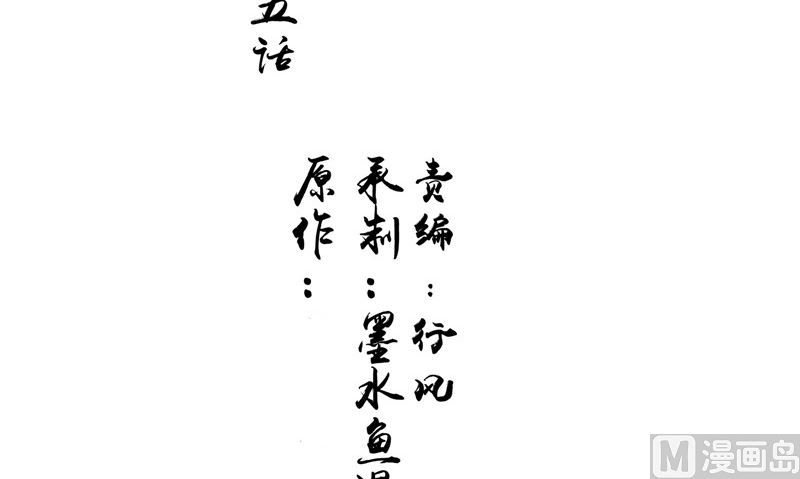 五话
责编：行风
承制：墨水鱼漫
原作：
漫画岛